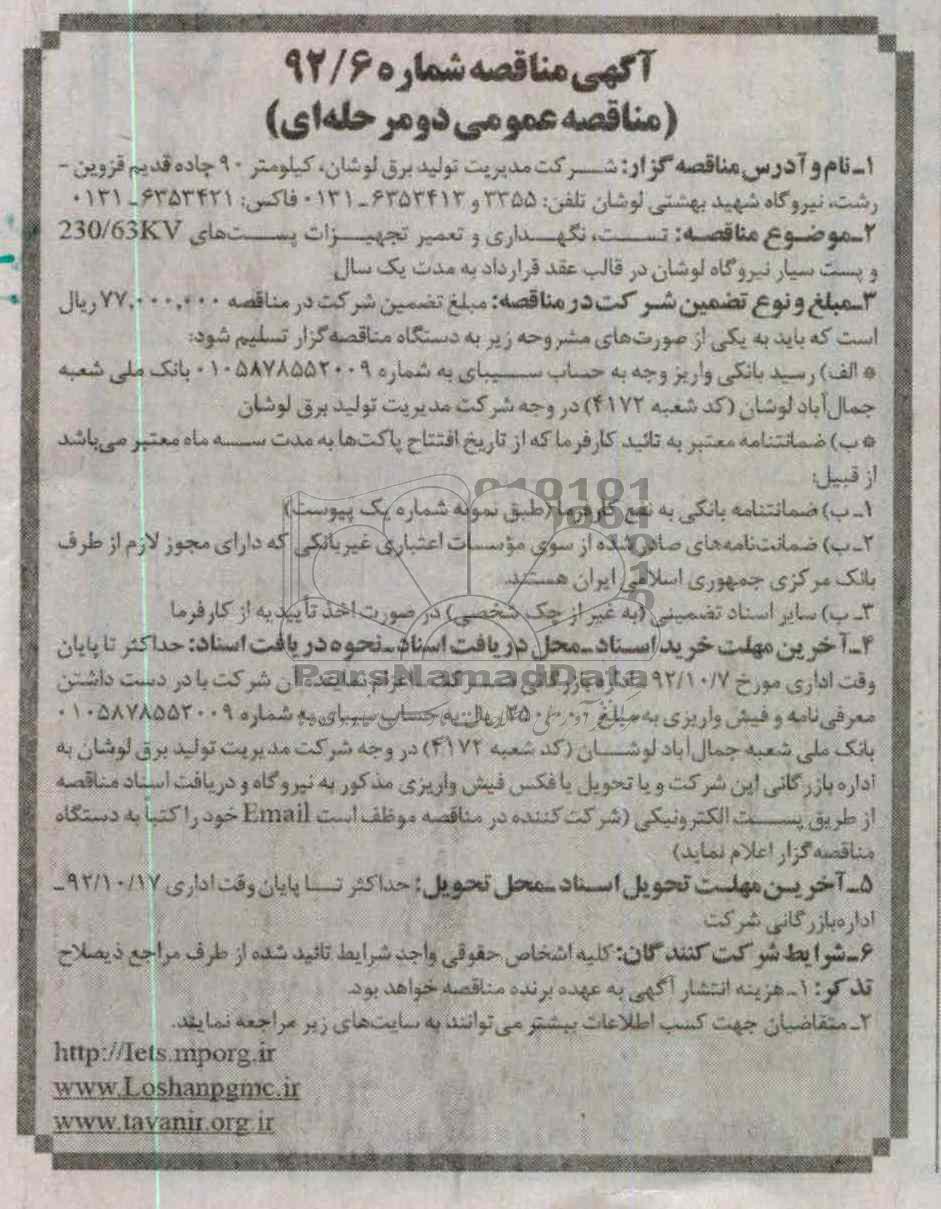 آگهی مناقصه شماره ۹۲/۶
(مناقصه عمومی دو مرحله‌ای)
۱ـ نام و آدرس مناقصه گزار: شرکت مدیریت تولید برق لوشان، کیلومتر ۹۰ جاده قدیم قزوین -
رشت، نیروگاه شهید بهشتی لوشان تلفن: ۳۳۵۵ و ۶۳۵۳۴۱۳ ـ ۰۱۳۱ فاکس: ۶۳۵۳۴۲۱ ـ ۰۱۳۱
۲ـ موضوع مناقصه: تست، نگهداری و تعمیر تجهیزات پست‌های 230/63KV
و پست سیار نیروگاه لوشان در قالب عقد قرارداد به مدت یک سال
۳ـ مبلغ و نوع تضمین شرکت در مناقصه: مبلغ تضمین شرکت در مناقصه ۷۷,۰۰۰,۰۰۰ ریال
است که باید به یکی از صورت‌های مشروحه زیر به دستگاه مناقصه‌گزار تسلیم شود:
* الف) رسید بانکی واریز وجه به حساب سیبای به شماره ۰۱۰۵۸۷۸۵۵۲۰۰۹ بانک ملی شعبه
جمال‌آباد لوشان (کد شعبه ۴۱۷۲) در وجه شرکت مدیریت تولید برق لوشان
* ب) ضمانتنامه معتبر به تائید کارفرما که از تاریخ افتتاح پاکت‌ها به مدت سه ماه معتبر می‌باشد
از قبیل:
۱ـ ب) ضمانتنامه بانکی به نفع کارفرما (طبق نمونه شماره یک پیوست)
۲ـ ب) ضمانت‌نامه‌های صادر شده از سوی مؤسسات اعتباری غیربانکی که دارای مجوز لازم از طرف
بانک مرکزی جمهوری اسلامی ایران هستند.
۳ـ ب) سایر اسناد تضمینی (به غیر از چک شخصی) در صورت اخذ تأییدیه از کارفرما
ParsNamadData
۴ـ آخرین مهلت خرید اسناد ـ محل دریافت اسناد ـ نحوه دریافت اسناد: حداکثر تا پایان
وقت اداری مورخ ۹۲/۱۰/۷ اداره بازرگانی شرکت اعزام نماینده آن شرکت با در دست داشتن
معرفی‌نامه و فیش واریزی به مبلغ ریال به حساب سیبای به شماره ۰۱۰۵۸۷۸۵۵۲۰۰۹
بانک ملی شعبه جمال‌آباد لوشان (کد شعبه ۴۱۷۲) در وجه شرکت مدیریت تولید برق لوشان به
اداره بازرگانی این شرکت و یا تحویل یا فکس فیش واریزی مذکور به نیروگاه و دریافت اسناد مناقصه
از طریق پست الکترونیکی (شرکت‌کننده در مناقصه موظف است Email خود را کتباً به دستگاه
مناقصه‌گزار اعلام نماید)
۵ـ آخرین مهلت تحویل اسناد ـ محل تحویل: حداکثر تا پایان وقت اداری ۹۲/۱۰/۱۷ ـ
اداره‌بازرگانی شرکت
۶ـ شرایط شرکت کنندگان: کلیه اشخاص حقوقی واجد شرایط تائید شده از طرف مراجع ذیصلاح
تذکر: ۱ـ هزینه انتشار آگهی به عهده برنده مناقصه خواهد بود.
۲ـ متقاضیان جهت کسب اطلاعات بیشتر می‌توانند به سایت‌های زیر مراجعه نمایند.
http://Iets.mporg.ir
www.Loshanpgmc.ir
www.tavanir.org.ir